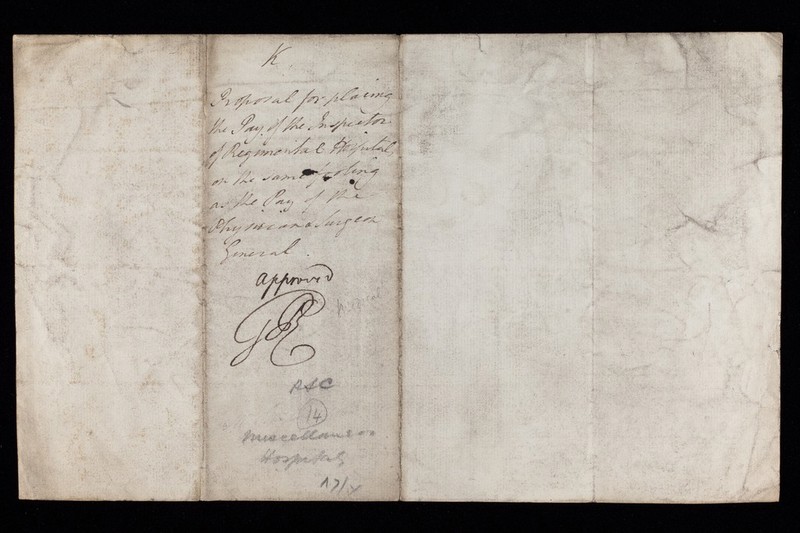 K
Proposal for placing
the Pay of the Inspector
of Regimental Hospitals
on the same footing
as the Pay of the
Physician & Surgeon
General.
Approved
GR
RSC
14
Miscellaneous
Hospitals